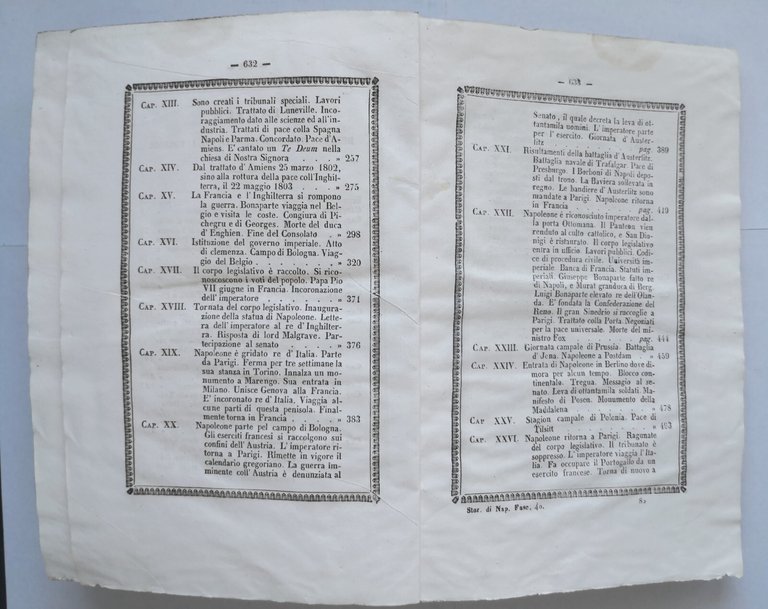 — 632 —
CAP. XIII. Sono creati i tribunali speciali. Lavori
pubblici. Trattato di Luneville. Inco-
raggiamento dato alle scienze ed all'in-
dustria. Trattati di pace colla Spagna
Napoli e Parma. Concordato. Pace d'A-
miens. E' cantato un Te Deum nella
chiesa di Nostra Signora . . . . » 257
CAP. XIV. Dal trattato d'Amiens 25 marzo 1802,
sino alla rottura della pace coll'Inghil-
terra, il 22 maggio 1803 . . . . » 275
CAP. XV. La Francia e l'Inghilterra si rompono
la guerra. Bonaparte viaggia nel Bel-
gio e visita le coste. Congiura di Pi-
chegru e di Georges. Morte del duca
d'Enghien. Fine del Consolato . . » 298
CAP. XVI. Istituzione del governo imperiale. Atto
di clemenza. Campo di Bologna. Viag-
gio del Belgio . . . . . . . » 320
CAP. XVII. Il corpo legislativo è raccolto. Si rico-
nososcono i voti del popolo. Papa Pio
VII giugne in Francia. Incoronazione
dell'imperatore . . . . . . . » 371
CAP. XVIII. Tornata del corpo legislativo. Inaugura-
zione della statua di Napoleone. Lette-
ra dell'imperatore al re d'Inghilter-
ra. Risposta di lord Malgrave. Par-
tecipazione al senato . . . . . » 376
CAP. XIX. Napoleone è gridato re d'Italia. Parte
da Parigi. Ferma per tre settimane la
sua stanza in Torino. Innalza un mo-
numento a Marengo. Sua entrata in
Milano. Unisce Genova alla Francia.
E' incoronato re d'Italia. Viaggia al-
cune parti di questa penisola. Final-
mente torna in Francia . . . . . » 383
CAP. XX. Napoleone parte pel campo di Bologna.
Gli eserciti francesi si raccolgono sui
confini dell'Austria. L'imperatore ri-
torna a Parigi. Rimette in vigore il
calendario gregoriano. La guerra im-
minente coll'Austria è denunziata al
— 633 —
Senato, il quale decreta la leva di ot-
tantamila uomini. L'imperatore parte
per l'esercito. Giornata d'Auster-
litz . . . . . . . . . pag. 389
CAP. XXI. Risultamenti della battaglia d'Austerlitz.
Battaglia navale di Trafalgar. Pace di
Presburgo. I Borboni di Napoli depo-
sti dal trono. La Baviera sollevata in
regno. Le bandiere d'Austerlitz sono
mandate a Parigi. Napoleone ritorna
in Francia . . . . . . . pag. 419
CAP. XXII. Napoleone è riconosciuto imperatore dal-
la porta Ottomana. Il Panteon vien
renduto al culto cattolico, e San Dio-
nigi è ristaurato. Il corpo legislativo
entra in ufficio. Lavori pubblici. Codi-
ce di procedura civile. Università im-
periale. Banca di Francia. Statuti im-
periali. Giuseppe Bonaparte fatto re
di Napoli, e Murat granduca di Berg.
Luigi Bonaparte elevato re dell'Olan-
da. E' fondata la Confederazione del
Reno. Il gran Sinedrio si raccoglie a
Parigi. Trattato colla Porta. Negoziati
per la pace universale. Morte del mi-
nistro Fox . . . . . . . pag. 444
CAP. XXIII. Giornata campale di Prussia. Battaglia
d'Jena. Napoleone a Postdam . . » 459
CAP. XXIV. Entrata di Napoleone in Berlino dove di-
mora per alcun tempo. Blocco con-
tinentale. Tregua. Messagio al se-
nato. Leva di ottantamila soldati. Ma-
nifesto di Posen. Monumento della
Maddalena . . . . . . . » 478
CAP. XXV. Stagion campale di Polonia. Pace di
Tilsitt . . . . . . . . » 493
CAP. XXVI. Napoleone ritorna a Parigi. Ragunate
del corpo legislativo. Il tribunato è
soppresso. L'imperatore viaggia l'Ita-
lia. Fa occupare il Portogallo da un
esercito francese. Torna di nuovo a
Stor. di Nap. Fasc. 40.